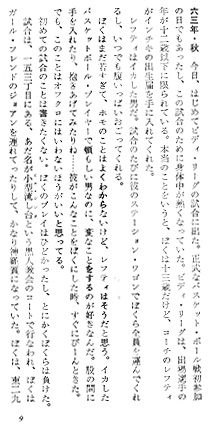 六三年・秋　今日、はじめてビディ・リーグの試合に出た。正式なバスケット・ボール戦初参加
の日でもあったし、この試合のために身体中が熱くなっていた。ビディ・リーグは、出場選手の
年が十二歳以下に限られている。本当のことをいうと、ぼくは十三歳だけど、コーチのレフティ
がインチキの出生届を手に入れてくれた。
レフティはイカした男だ。試合のたびに彼のステーション・ワゴンでぼくら全員を運んでくれ
るし、いつでも腹いっぱいおごってくれる。
ぼくはまだ若すぎて、ホモのことはよくわからないけど、レフティはそうだと思う。イカした
バスケットボール・プレイヤーで頼もしい男なのに、変なことをするのが好きなんだ。股の間に
手を入れたり、抱きあげてみたり……彼がこんなことをぼくにした時、すぐにぴーんときた。
でも、このことはオフクロにはいわないほうがいいと思ってる。
初めての試合のことは書きたくない。ぼくのプレイはひどかったし、とにかくぼくらは負けた。
試合は、一五三丁目にある、あだ名が小型流し台という黒人教会のコートで行なわれ、ぼくは
ガール・フレンドのジョアンを連れてたりして、かなり神経質になっていた。ぼくは、東二九
9